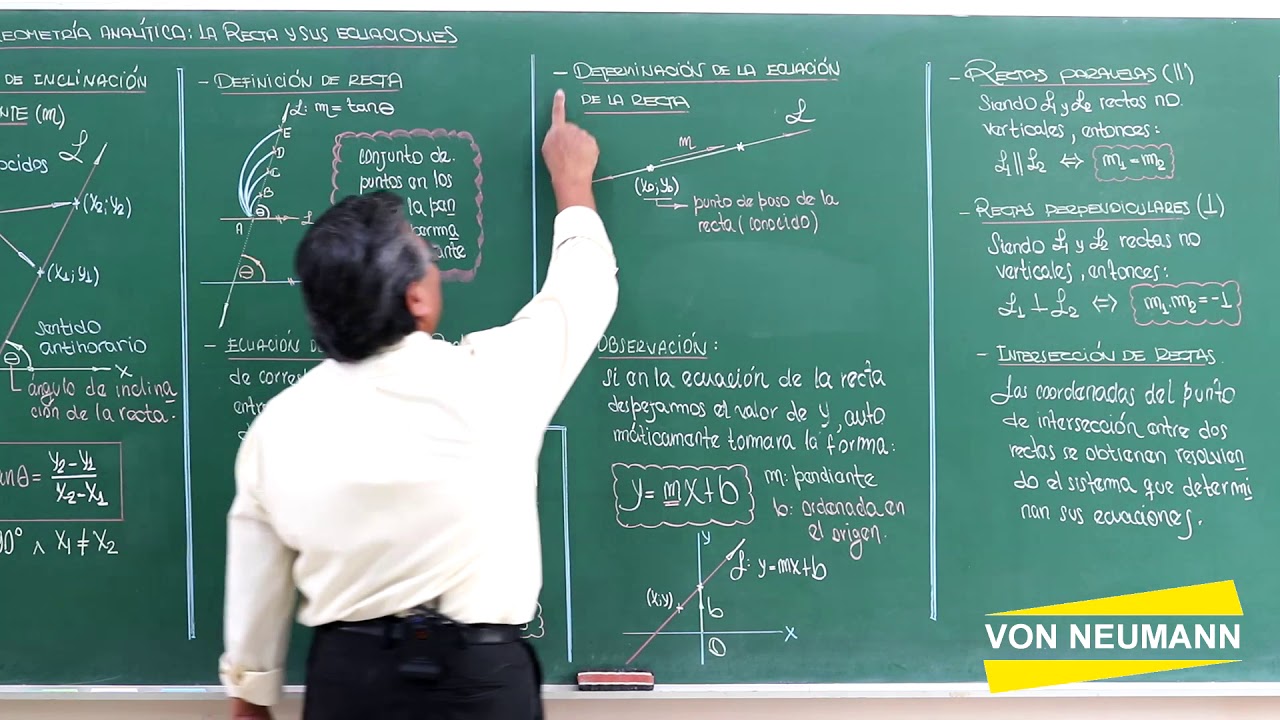 GEOMETRÍA ANALÍTICA: LA RECTA Y SUS ECUACIONES
DE INCLINACIÓN
(m)
L
(x2; y2)
(x1; y1)
sentido
antihorario
θ
X
ángulo de inclina
ción de la recta.
tanθ = y2-y1
x2-x1
∧ x1 ≠ x2
- DEFINICIÓN DE RECTA
L: m = tanθ
E
D
C
B
θ
A
L
θ
conjunto de
puntos en los
la pen
- ECUACIÓN DE
de
- DETERMINACIÓN DE LA ECUACIÓN
DE LA RECTA
L
m
(x0; y0)
punto de paso de la
recta (conocido)
OBSERVACIÓN:
Si en la ecuación de la recta
despejamos el valor de y, auto
máticamente tomara la forma:
y = mx + b
m: pendiente
b: ordenada en
el origen.
y
L: y = mx + b
(x; y)
b
X
O
- RECTAS PARALELAS (//)
Siendo L1 y L2 rectas no
verticales, entonces:
L1 // L2 ⇔ m1 = m2
- RECTAS PERPENDICULARES (⊥)
Siendo L1 y L2 rectas no
verticales, entonces:
L1 ⊥ L2 ⇔ m1 . m2 = -1
- INTERSECCIÓN DE RECTAS.
Las coordenadas del punto
de intersección entre dos
rectas se obtienen resolvien
do el sistema que determi
nan sus ecuaciones.
VON NEUMANN